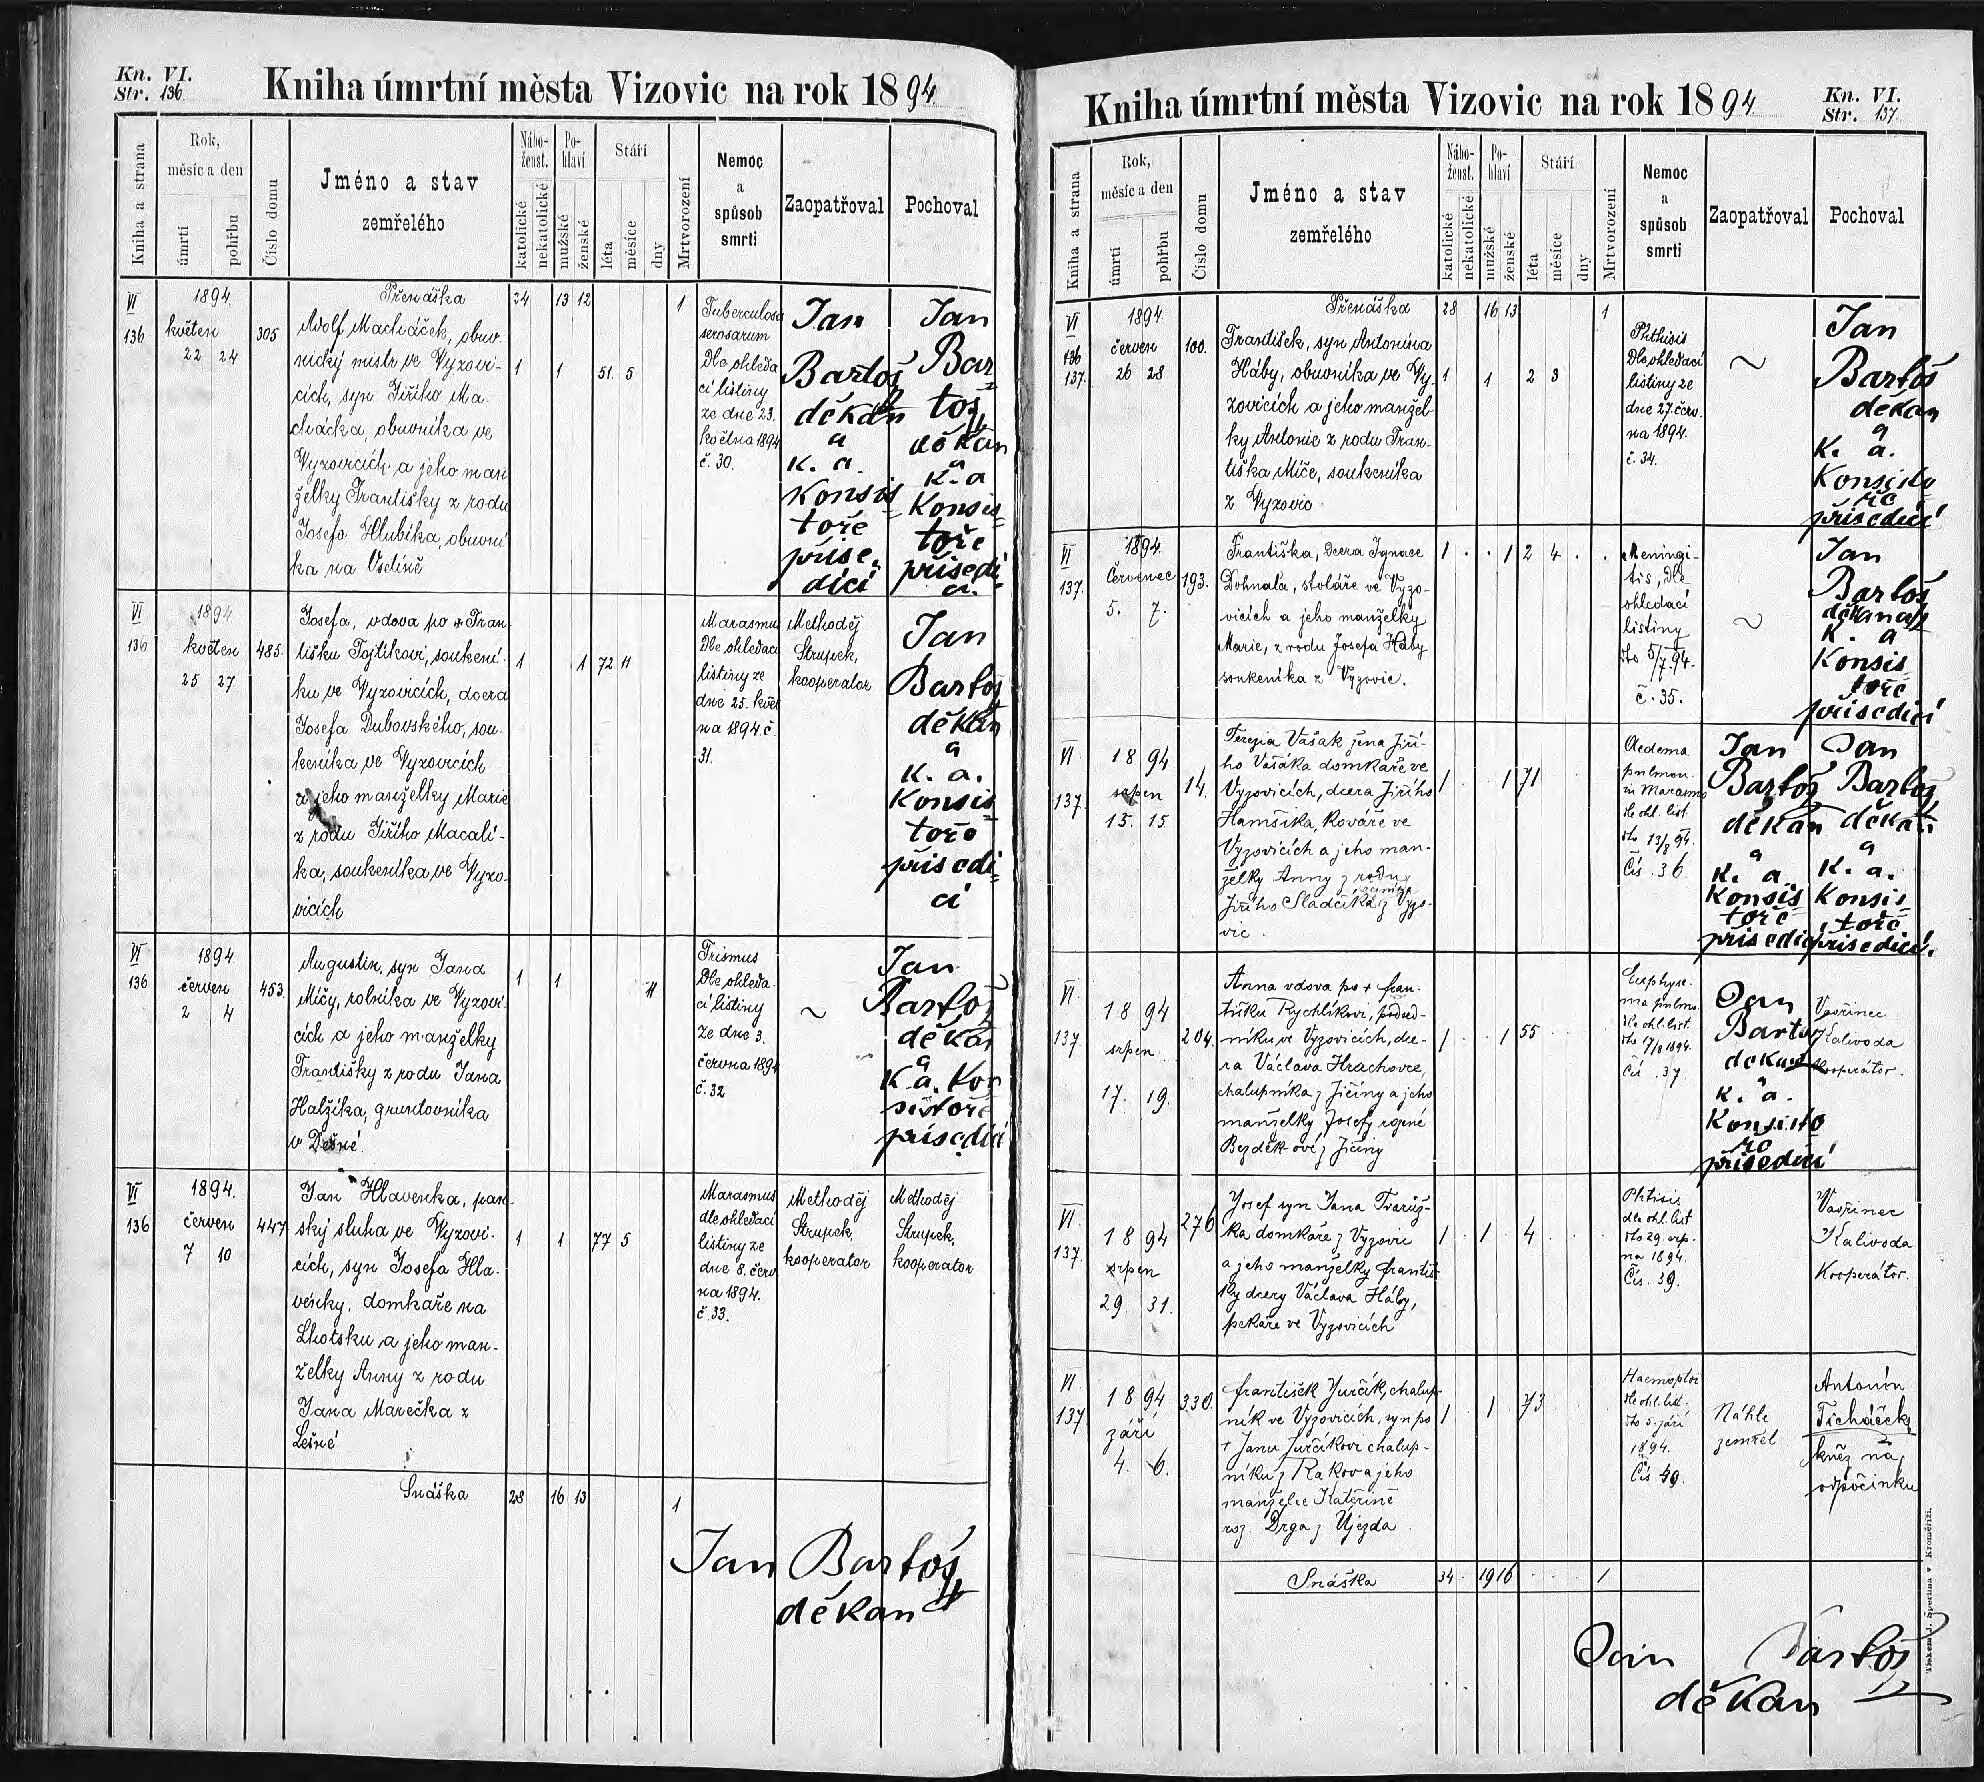 Kn. VI.
Str. 136
Kniha úmrtní města Vizovic na rok 1894
Kniha a strana
Rok,
měsíc a den
úmrtí
pohřbu
Číslo domu
Jméno a stav
zemřelého
Nábo-
ženst.
katolické
nekatolické
Po-
hlaví
mužské
ženské
Stáří
léta
měsíce
dny
Mrtvorození
Nemoc
a
spůsob
smrti
Zaopatřoval
Pochoval
Přenáška 24 13 12 1
VI
136
1894.
květen
22 24
305
Adolf Macháček, obuv-
nický mistr ve Vyzovi-
cích, syn Jiřího Ma-
cháčka, obuvníka ve
Vyzovicích a jeho man
želky Františky z rodu
Josefa Hlubíka, obuvní
ka na Vsetíně
1 1 51. 5
Tuberculosa
serosarum
Dle ohleda
cí listiny
ze dne 23.
května 1894
č. 30.
Jan
Bartoš
děkan
a
k. a.
Konsis
toře
příse-
dící
Jan
Bar
toš,
děkan
a
k. a
Konsis
toře
přísedí
cí.
VI
136
1894
květen
25 27
485.
Josefa, vdova po + Fran
tišku Fojtíkovi, soukení-
ku ve Vyzovicích, dcera
Josefa Dubovského, sou-
keníka ve Vyzovicích
a jeho manželky Marie
z rodu Jiřího Macalí-
ka, soukeníka ve Vyzo-
vicích
1 1 72 11
Marasmus
Dle ohledací
listiny ze
dne 25. květ
na 1894 č.
31.
Methoděj
Strupek,
kooperator
Jan
Bartoš
děkan
a
k. a.
Konsis
toře
přísedí
cí
VI
136
1894
červen
2 4
453.
Augustin, syn Jana
Míčy, rolníka ve Vyzovi-
cích a jeho manželky
Františky z rodu Jana
Halžíka, gruntovníka
v Dešné.
1 1 11
Trismus
Dle ohleda-
cí listiny
ze dne 3.
června 1894
č. 32
~
Jan
Bartoš
děkan
a
k. a. Kon
sistoře
přísedící
VI
136
1894.
červen
7 10
447
Jan Hlavenka, pan-
ský sluha ve Vyzovi-
cích, syn Josefa Hla-
venky, domkaře na
Lhotsku a jeho man-
želky Anny z rodu
Jana Marečka z
Lešné
1 1 77 5
Marasmus
dle ohledací
listiny ze
dne 8. červ
na 1894.
č. 33.
Methoděj
Strupek,
kooperator
Methoděj
Strupek,
kooperator
Snáška 28 16 13 1
Jan Bartoš,
děkan
Kniha úmrtní města Vizovic na rok 1894
Kn. VI.
Str. 137
Kniha a strana
Rok,
měsíc a den
úmrtí
pohřbu
Číslo domu
Jméno a stav
zemřelého
Nábo-
ženst.
katolické
nekatolické
Po-
hlaví
mužské
ženské
Stáří
léta
měsíce
dny
Mrtvorození
Nemoc
a
spůsob
smrti
Zaopatřoval
Pochoval
Přenáška 28 16 13 1
VI
136
137.
1894.
červen
26 28
100.
František, syn Antonína
Háby, obuvníka ve Vy-
zovicích a jeho manžel-
ky Antonie z rodu Fran-
tiška Míče, soukeníka
z Vyzovic
1 1 2 3
Phthisis
Dle ohledací
listiny ze
dne 27. červ-
na 1894.
č. 34.
~
Jan
Bartoš
děkan
a
k. a.
Konsisto
ře
přísedící
VI
137.
1894.
Červenec
5. 7.
193.
Františka, dcera Ignace
Dohnala, stoláře ve Vyzo-
vicích a jeho manželky
Marie, z rodu Josefa Háby
soukeníka z Vyzovic.
1 1 2 4
Meningi-
tis, Dle
ohledací
listiny
dto 5/7.94.
č. 35.
~
Jan
Bartoš
děkan a
k. a
Konsis
toře
přísedící
VI
137.
1894
srpen
13. 15.
14.
Terezia Vašak žena Jiří-
ho Vašáka domkáře ve
Vyzovicích, dcera Jiřího
Hamšíka, kováře ve
Vyzovicích a jeho man-
želky Anny z rodu
Jiřího Sladčíka z Vyzo-
vic.
1 1 71
Oedema
pulmon.
in Marasmo
dle ohl. list
dto 13/8 94.
Čís. 36
Jan
Bartoš
děkan
a
k. a
Konsis
toře
přísedící
Jan
Bartoš,
děkan
a
k. a.
Konsis
toře
přísedící.
VI.
137
1894
srpen
17. 19.
204.
Anna vdova po + Fran-
tišku Rychlíkovi, podsed-
níku ve Vyzovicích, dce-
ra Václava Hrachovce,
chalupníka z Jičíny a jeho
manželky Josefy rozené
Bezděkové z Jičíny
1 1 55
Emphyse-
ma pulmo.
dle ohl. list.
dto 17/8 1894.
Čís. 37
Jan
Bartoš
děkan
a
k. a.
Konsisto
ře
přísedící
Vavřinec
Kalivoda
Kooperátor.
VI.
137.
1894
srpen
29. 31.
276
Josef syn Jana Tvarůž-
ka domkáře z Vyzovic
a jeho manželky Františ-
ky dcery Václava Háby,
pekaře ve Vyzovicích
1 1 4
Phtisis
dle ohl. list
dto 29. srp-
na 1894.
Čís. 39.
Vavřinec
Kalivoda
Kooperátor.
VI.
137.
1894
září
4. 6.
330.
František Jurčík, chalup-
ník ve Vyzovicích, syn po
+ Janu Jurčíkovi chalup-
níku z Rakova a jeho
manželce Kateřině
roz. Drga z Újezda.
1 1 73
Haemoptoe
dle ohl. list.
dto 5. září
1894.
Čís 40.
Náhle
zemřel
Antonín
Ticháček
kněz na
odpočinku
Snáška 34 19 16 1
Jan Bartoš
děkan
Tiskem J. Sperlina v Kroměříži.